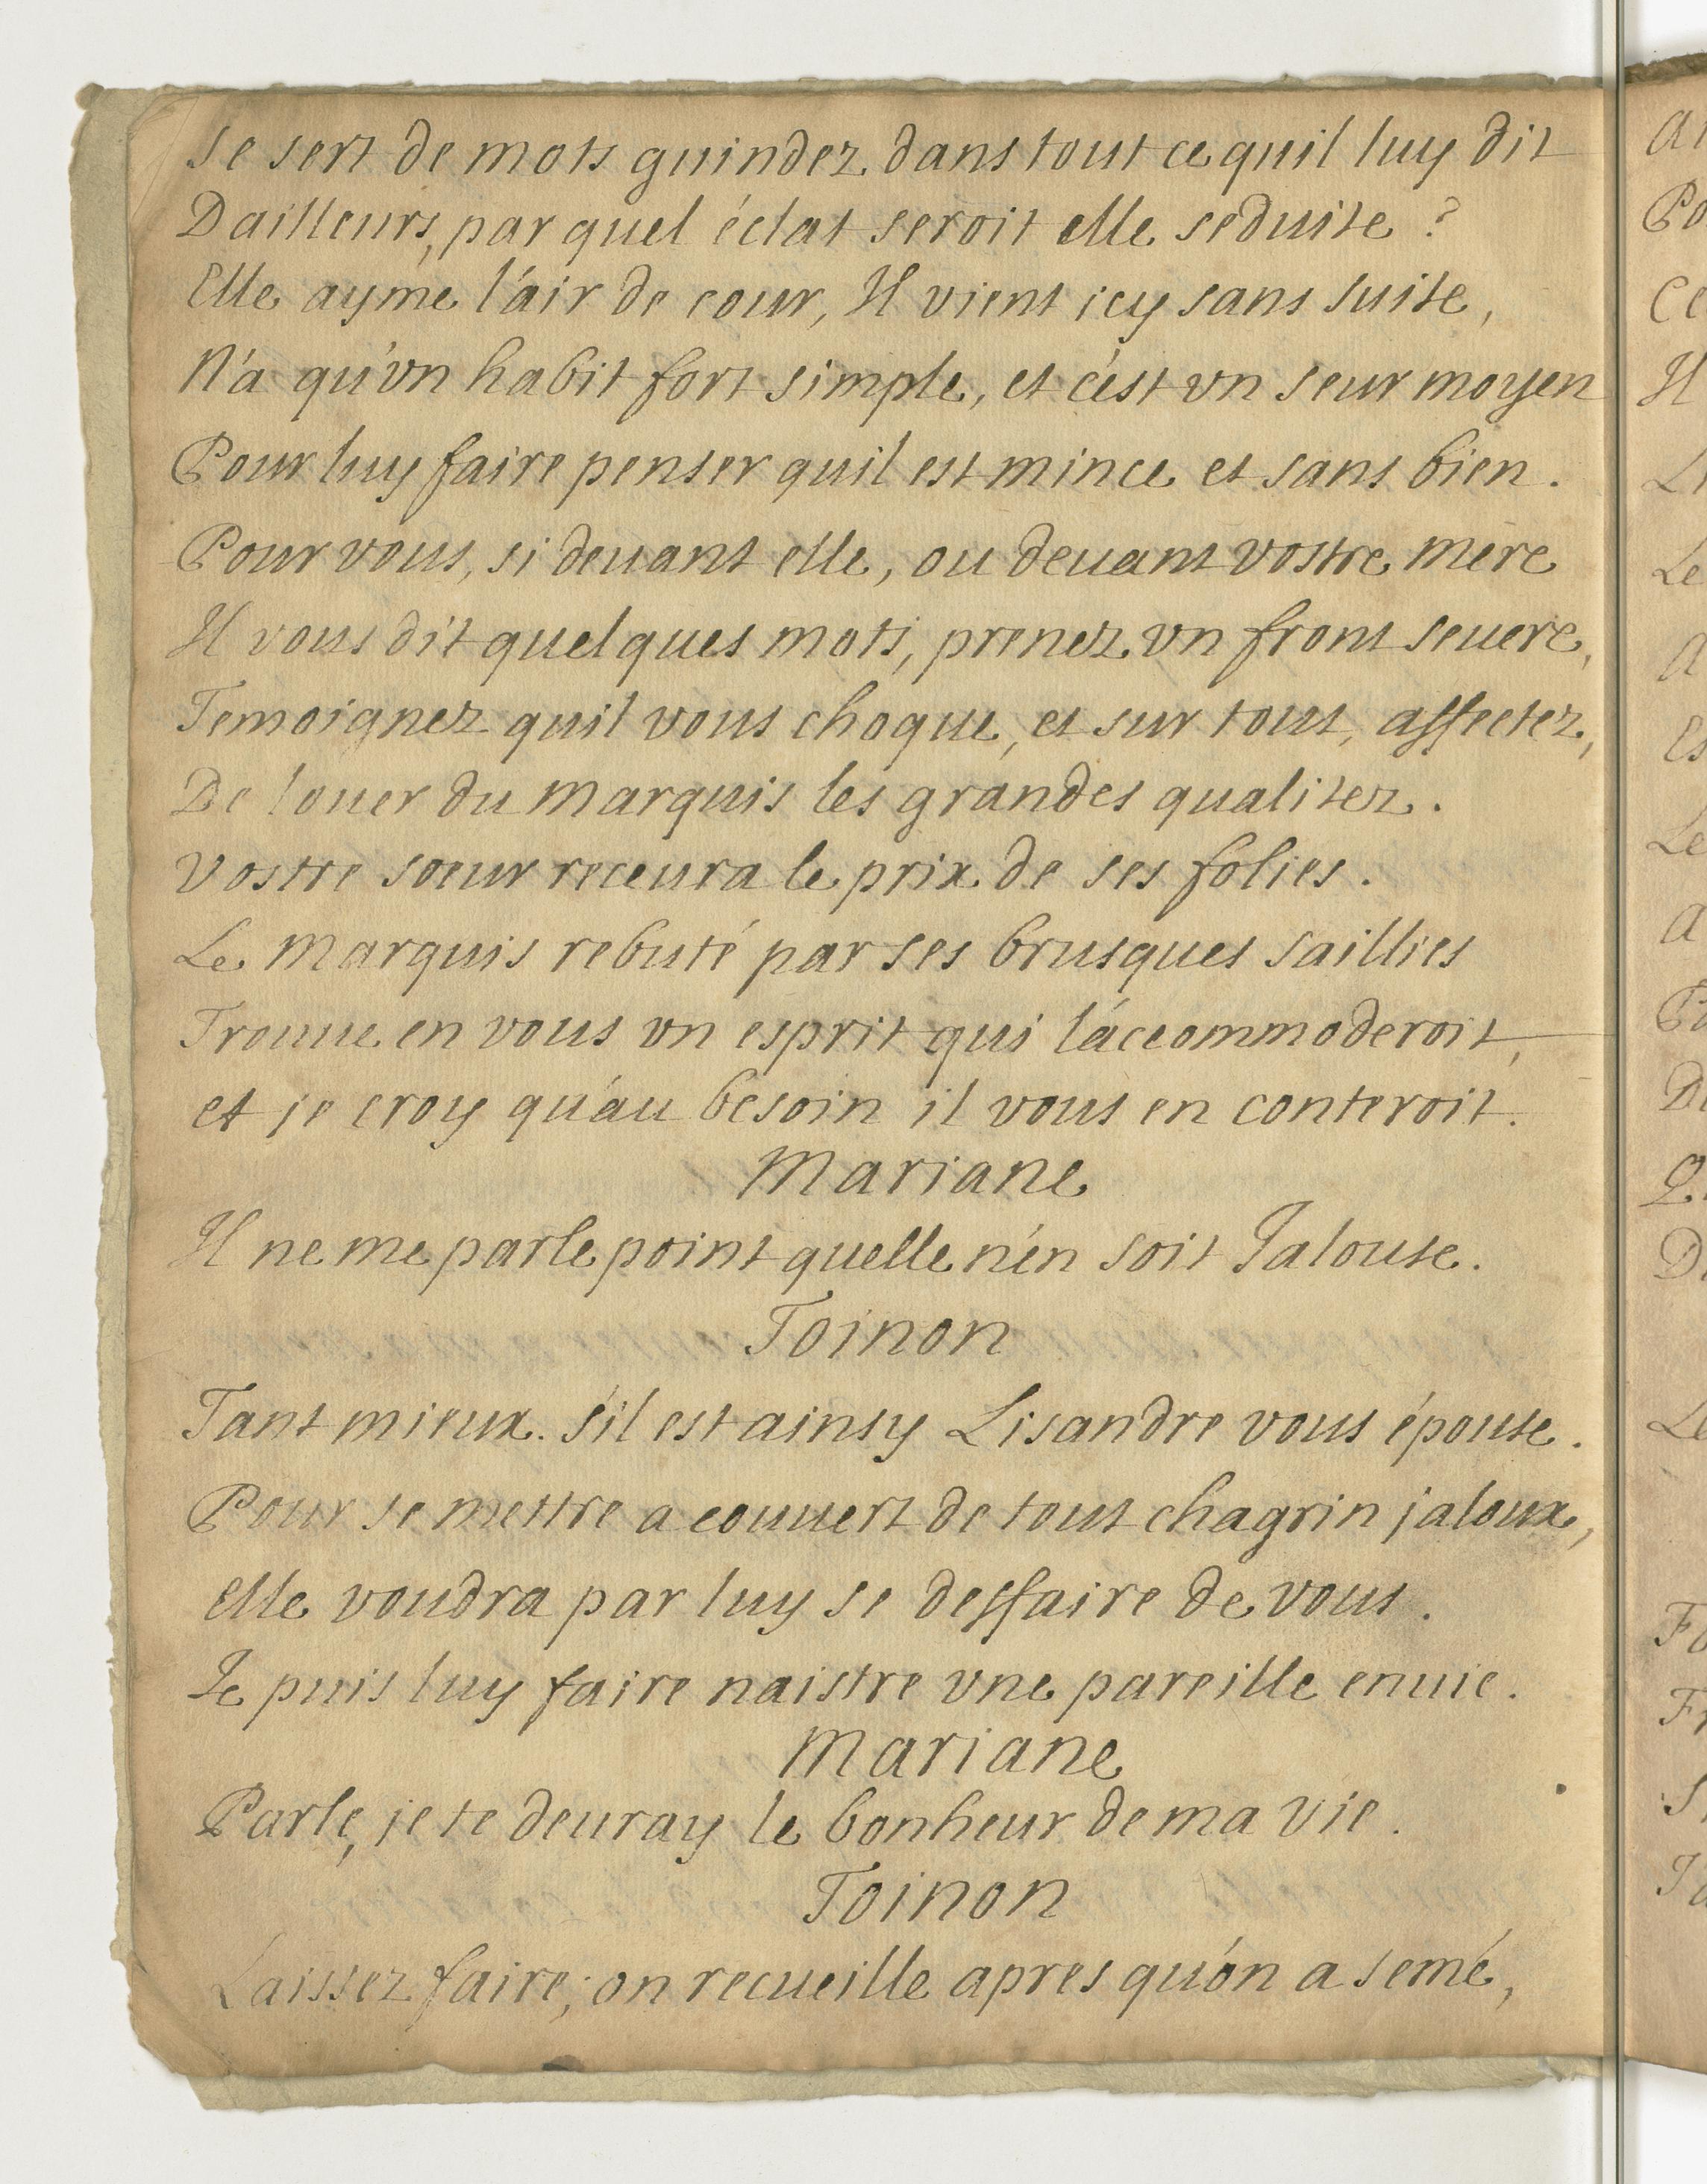 Se sert de mots guindez dans tout ce quil luy dit
Dailleurs, par quel éclat seroit elle seduite ?
Elle ayme l'air de cour, Il vient icy sans suite,
N'a qu'vn habit fort simple, et c'est vn seur moyen
Pour luy faire penser quil est mince et sans bien.
Pour vous, si deuant elle, ou deuant vostre mere
Il vous dit quelques mots, prenez vn front seuere,
Temoignez quil vous choque, et sur tout, affectez,
De louer du Marquis les grandes qualitez.
Vostre soeur receura le prix de ses folies.
Le Marquis rebuté par ses brusques saillies
Trouue en vous vn esprit qui l'accommoderoit,
et je croy qu'au besoin il vous en conteroit.
Mariane
Il ne me parle point quelle n'en soit Jalouse.
Toinon
Tant mieux. s'il est ainsy Lisandre vous épouse.
Pour se mettre a couuert de tout chagrin jaloux,
Elle voudra par luy se deffaire de vous.
Je puis luy faire naistre vne pareille enuie.
Mariane
Parle, je te deuray le bonheur de ma vie.
Toinon
Laissez faire; on recueille apres qu'on a semé,